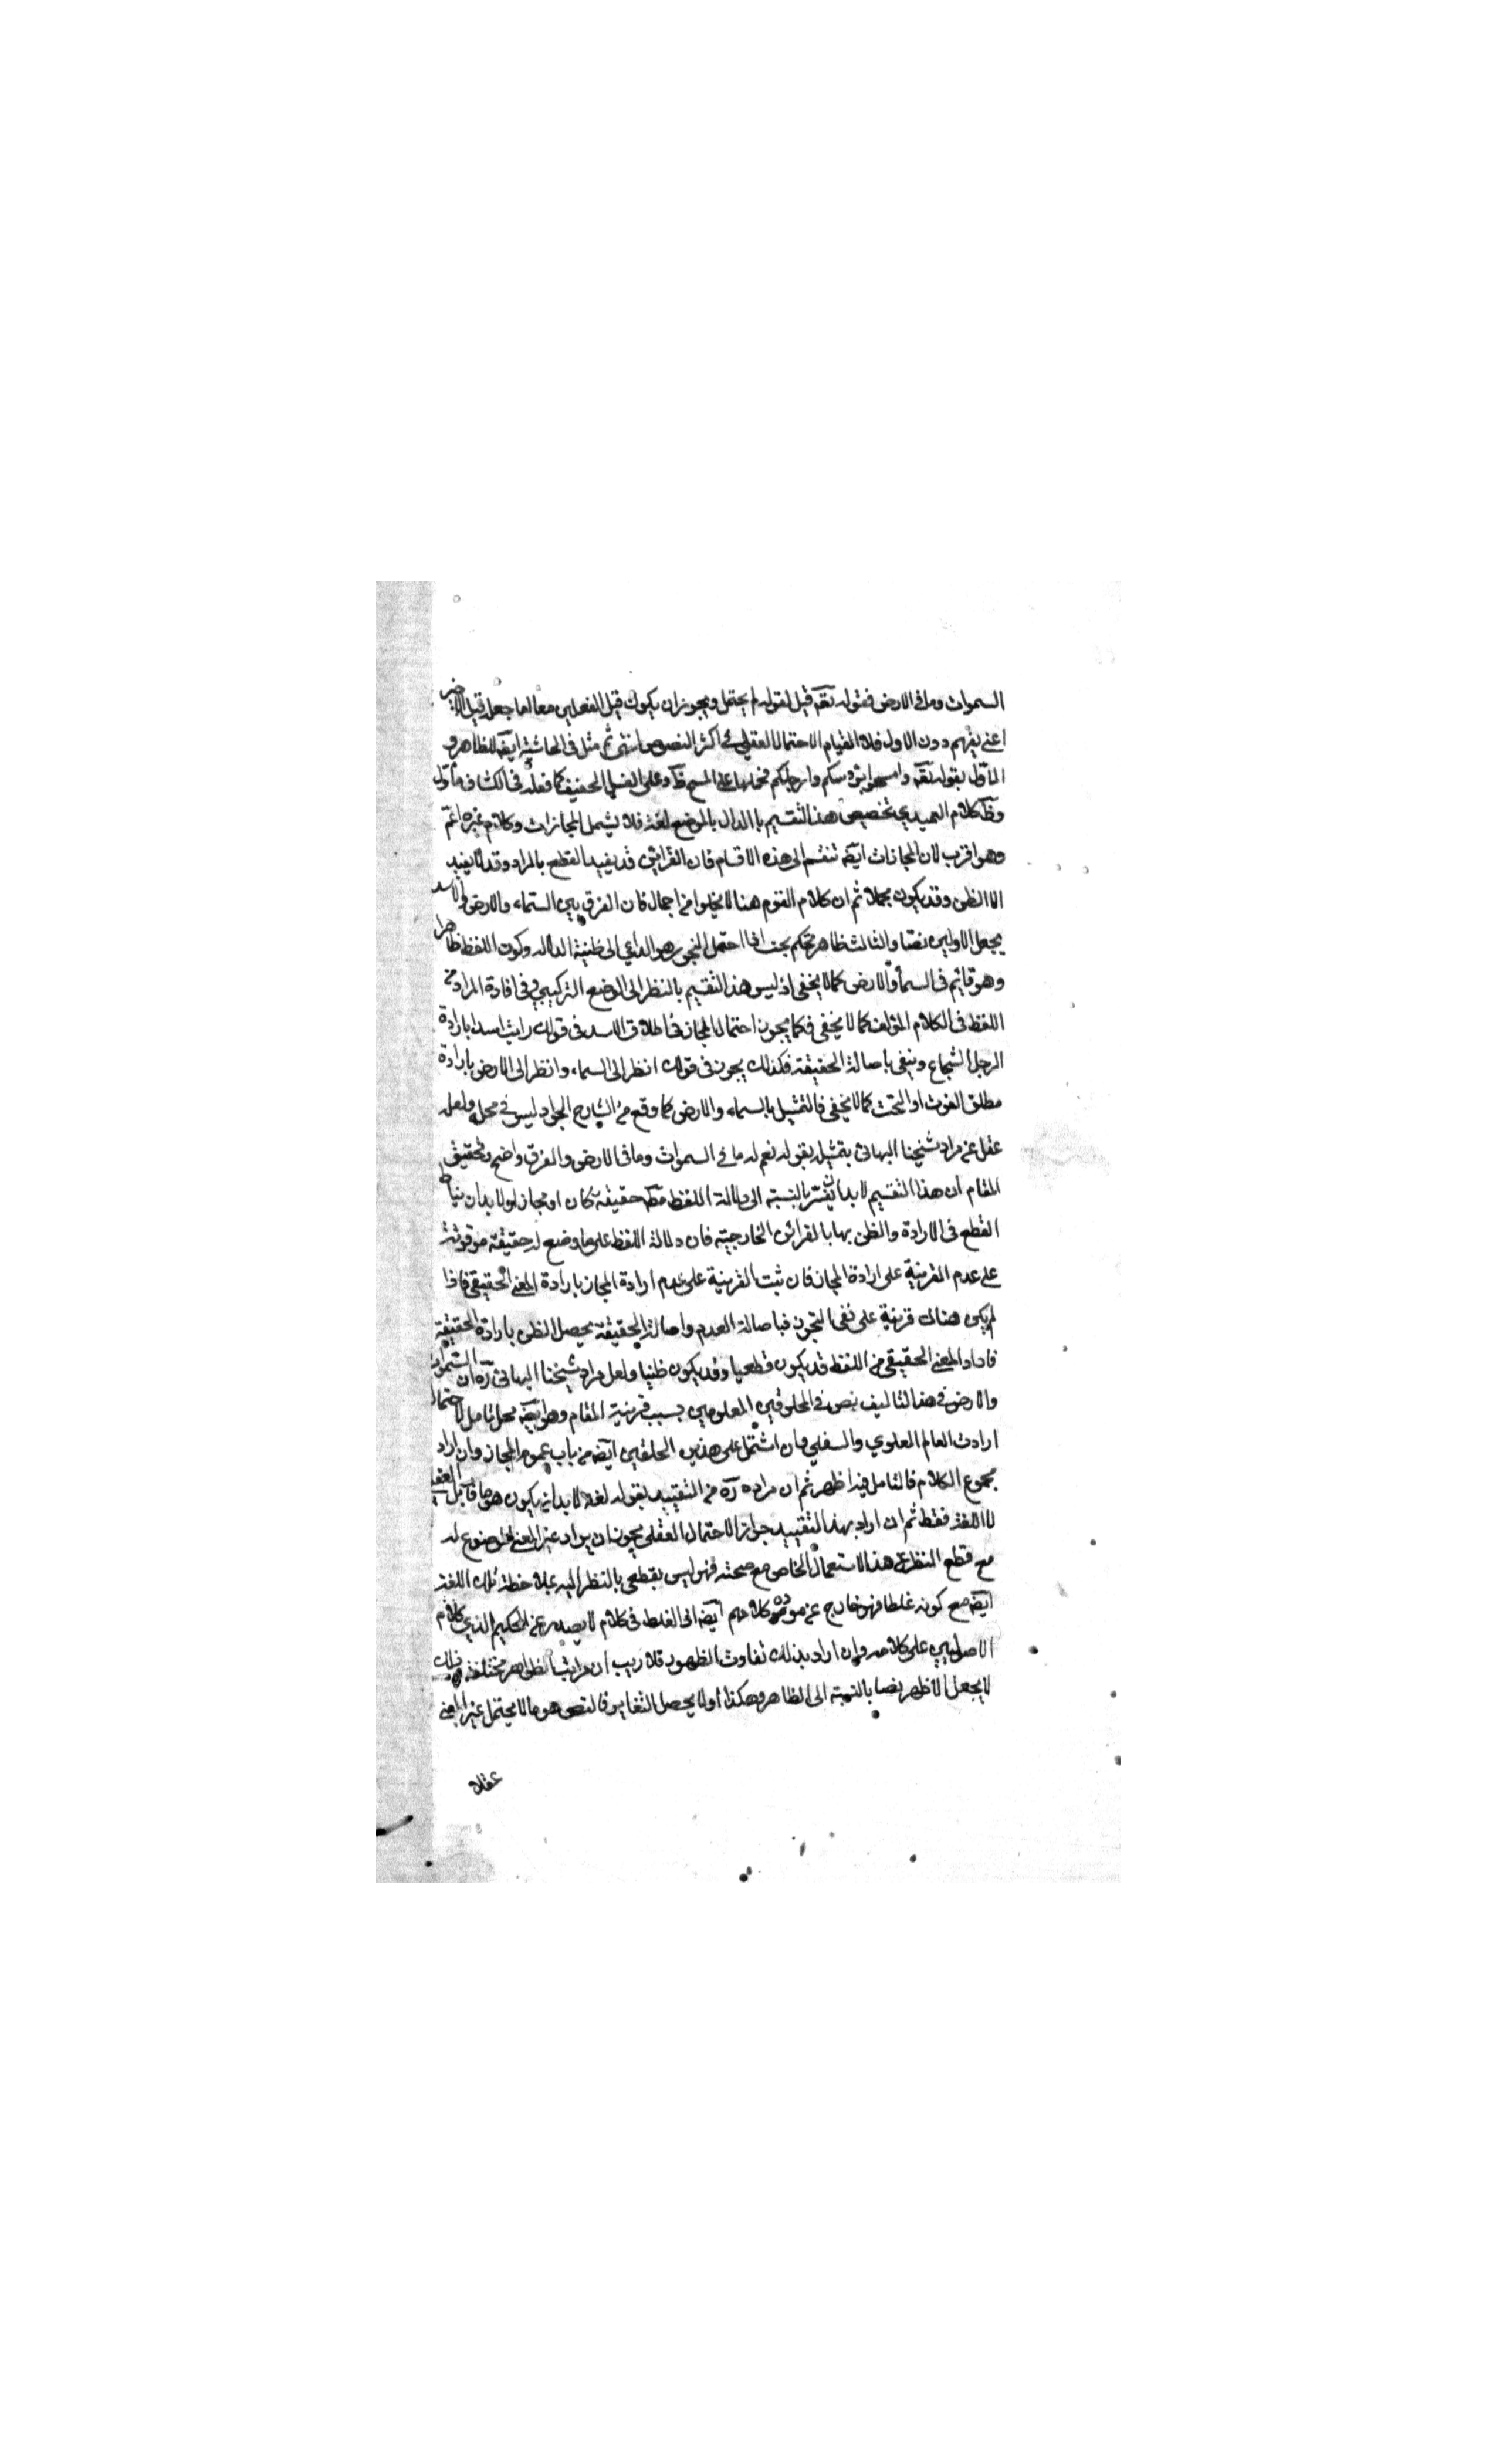 السموات وما في الارض فقوله لغة قيل لقوله لم يحتمل ويجوز ان يكون قيل الفعلين معا لما جعله قيل الاخير
اعني يفهم دون الاول فلا لقيام الاحتمال العقلي في اكثر النصوص انتهى ثم مثل في الحاشية ايضه للظاهر و
الماوّل بقوله تعه وامسحوا برؤسكم وارجلكم فحملها على المسح ظه وعلى الغسل الخفيف كما فعله في الكشاف ماوّل
وظه كلام العميدي تخصيص هذا التقسيم بالدال بالوضع لغة فلا يشمل المجازات وكلام غيره اعمّ
وهو اقرب لان المجازات ايضه تنقسم الى هذه الاقسام فان القرائن قد يفيد القطع بالمراد وقد لا يفيد
الا الظن وقد يكون مجملا ثم ان كلام القوم هنا لا يخلوا من اجمال فان الفرق بين السماء والارض والاسد
بجعل الاولين نصّا والثالث ظاهر تحكم بحت اذا احتمل التجوز هو الداعي الى ظنية الدلاله وكون اللفظ ظاهرا
وهو قايم في السماء والارض كما لا يخفى اذ ليس هذا التقسيم بالنظر الى الوضع التركيبي في افادة المراد من
اللفظ في الكلام المؤلف كما لا يخفى فكما يجوز احتمال المجاز في اطلاق الاسد في قولك رايت اسدا بارادة
الرجل الشجاع وينفى باصالة الحقيقة فكذلك يجوز في قولك انظر الى السماء وانظر الى الارض بارادة
مطلق الفوق او التحت كما لا يخفى فالتمثيل بالسماء والارض كما وقع من الشارح الجواد ليس في محله ولعله
غفل عن مراد شيخنا البهائي بتمثيله بقوله نعم له ما في السموات وما في الارض والفرق واضح وتحقيق
المقام ان هذا التقسيم لا بد ان يفسّر بالنسبة الى دلالة اللفظ مطه حقيقة كان او مجازا ولا بد ان يناط
القطع في الارادة والظن بها بالقرائن الخارجية فان دلالة اللفظ على ما وضع له حقيقة موقوفة
على عدم القرينة على ارادة المجاز فان ثبت القرينة على عدم ارادة المجاز بارادة المعنى الحقيقي فاذا
لم يكن هناك قرينة على نفي التجوز فباصالة العدم واصالة الحقيقة يحصل الظن بارادة الحقيقة
فاراد المعنى الحقيقي من اللفظ قد يكون قطعيا وقد يكون ظنيا ولعل مراد شيخنا البهائي ره ان السموات
والارض في هذا التاليف نص في المخلوقين المعلومين بسبب قرينة المقام وهو ايضه محل تامل لاحتمال
ارادت العالم العلوي والسفلي وان اشتمل على هذين الخلقين ايضه من باب عموم المجاز وان اراد
مجموع الكلام فالتامل فيه اظهر ثم ان مراده ره من التقييد بقوله لغة لا بد ان يكون هو ما قابل العقل
لا اللغة فقط ثم ان اراد بهذا التقييد جواز الاحتمال العقلي يجوز ان يراد غير المعنى الموضوع له
مع قطع النظر عن هذا الاستعمال الخاص مع صحته فهو ليس بقطعي بالنظر اليه بملاحظة تلك اللغة
ايضه مع كونه غلطا فهو خارج عن مورد كلامهم ايضه اذ الغلط في كلام لا يصدر عن الحكيم الذي كلام
الاصوليين على كلامه وان اراد بذلك تفاوت الظهور فلا ريب ان مراتب الظواهر مختلفة وذلك
لا يجعل الاظهر نصا بالنسبة الى الظاهر وهكذا اولا يحصل التغاير فالنص هو ما لا يحتمل غير المعنى
عقلا